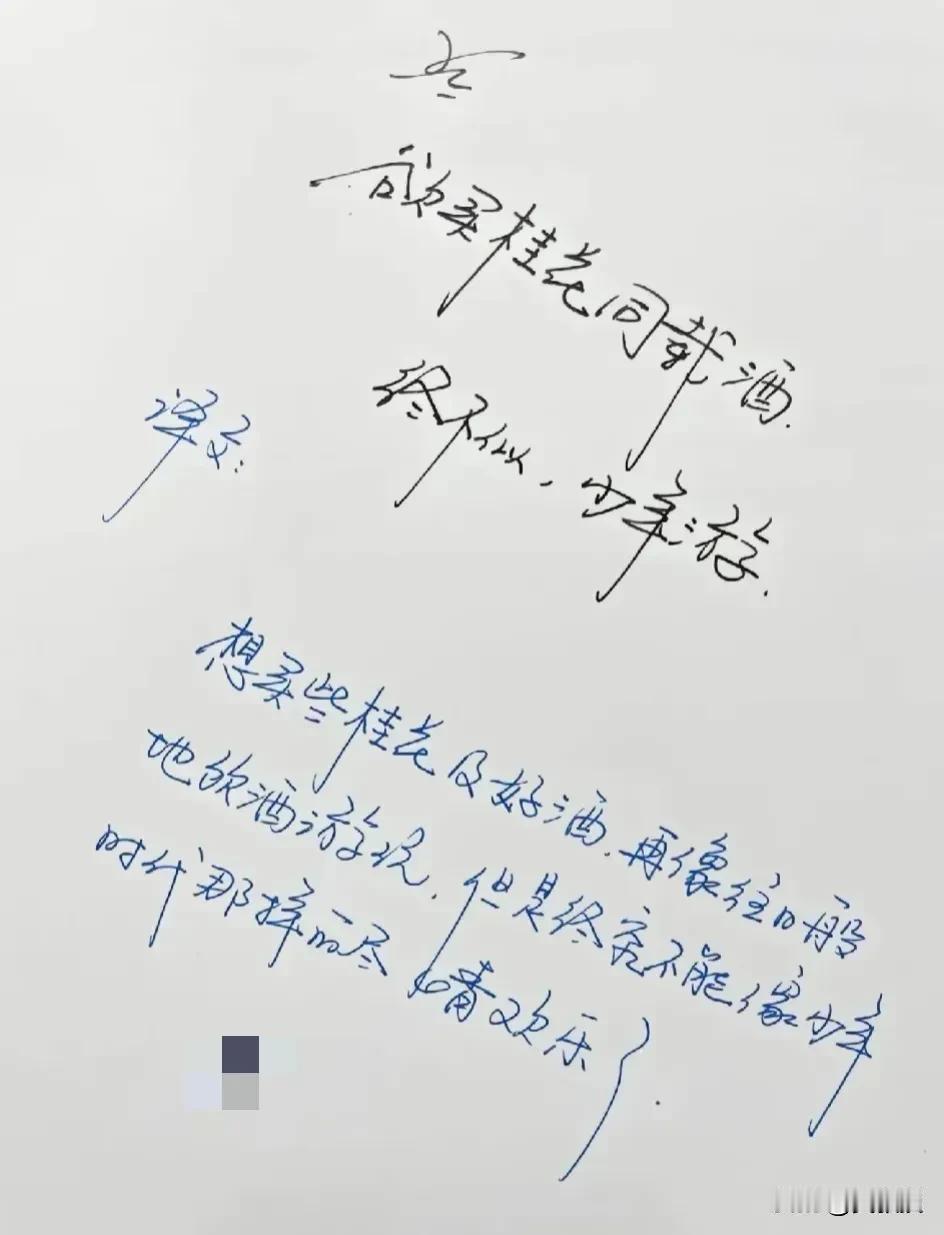 欲买桂花同载酒.
终不似,少年游.
译文:
想买些桂花及好酒.再像往日般
地饮酒游玩.但是终究不能像少年
时代那样而尽情欢乐